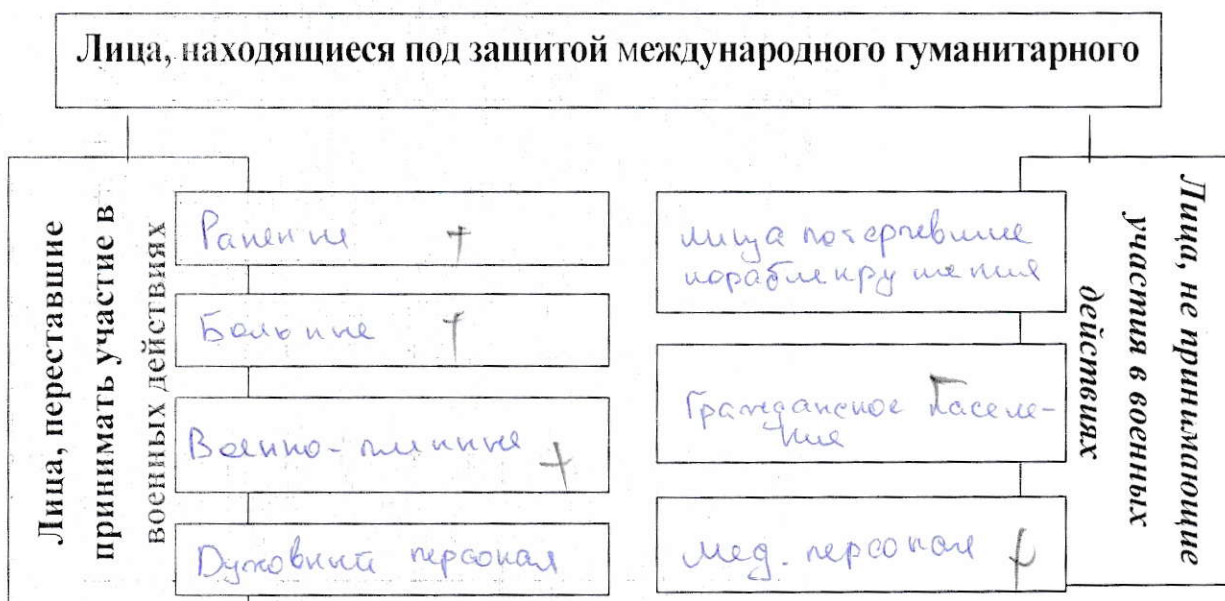 Лица, находящиеся под защитой международного гуманитарного
Лица, переставшие
принимать участие в
военных действиях
Раненые +
Больные +
Военно-пленные +
Духовный персонал
лица потерпевшие
кораблекрушения
Гражданское населе-
ния
Мед. персонал +
Лица, не принимающие
участия в военных
действиях